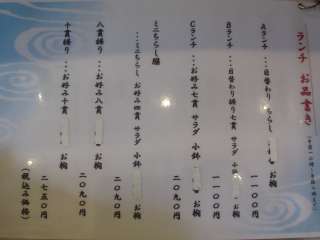 ランチ お品書き
Aランチ
…日替わりちらし お椀
一一〇〇円
Bランチ
…日替わり握り七貫 サラダ 小鉢 お椀
一一〇〇円
Cランチ
…お好み七貫 サラダ 小鉢 お椀
二〇九〇円
ミニちらし膳
…ミニちらし お好み四貫 サラダ 小鉢 お椀
二〇九〇円
八貫握り
…お好み八貫 お椀
二〇九〇円
十貫握り
…お好み十貫 お椀
二七五〇円
(税込み価格)